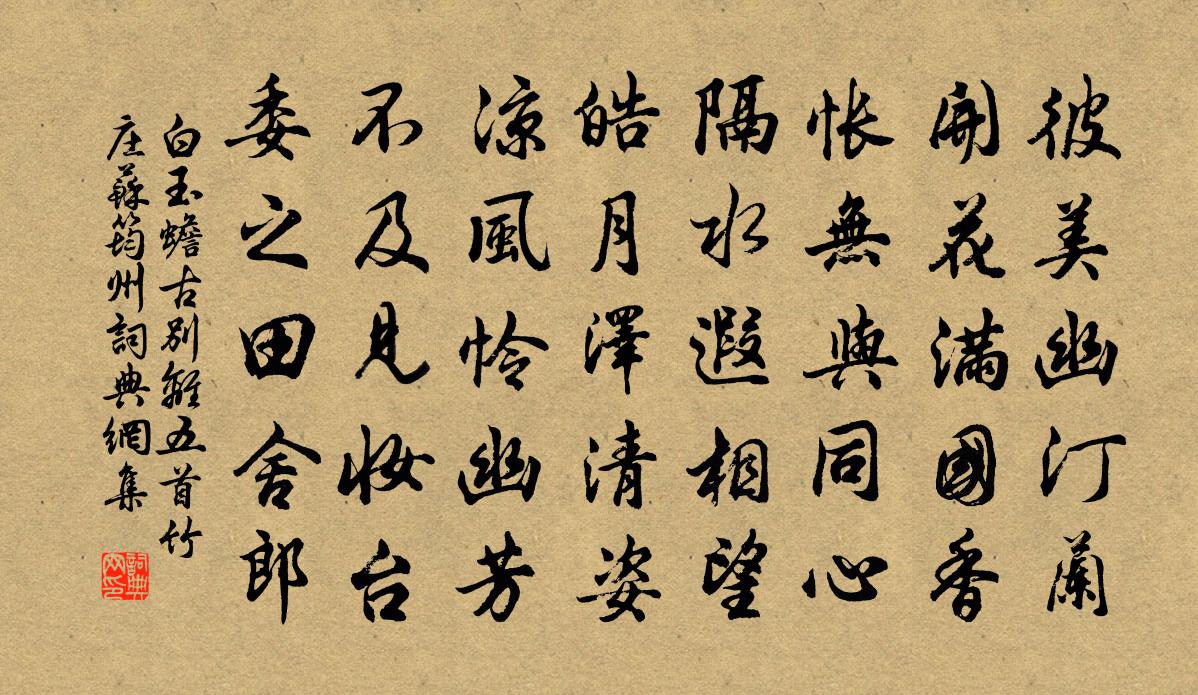 彼美幽汀蘭
開花滿國香
悵無與同心
隔水遐相望
皓月澤清姿
涼風怜幽芳
不及見妝台
委之田舍郎
白玉蟾古别離五首竹
庄蘇筠州詞典網集
詞典網印